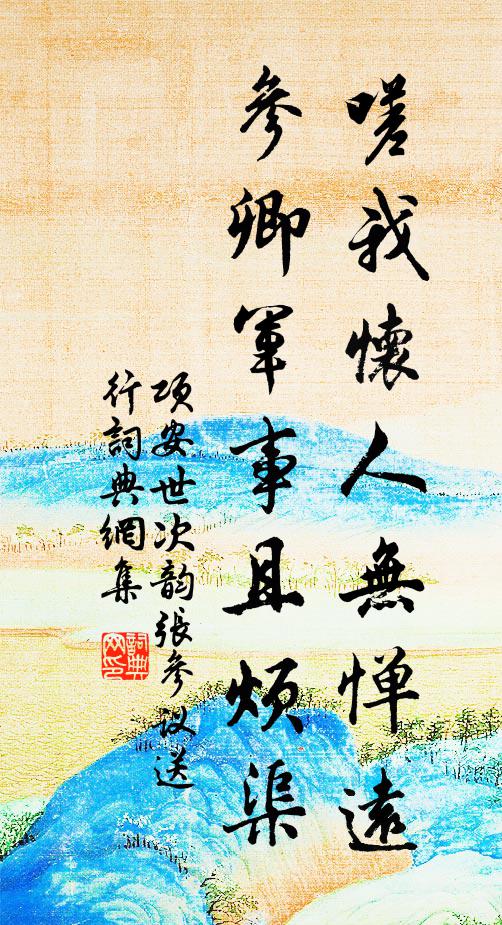 嗟我懷人無憚遠
參卿軍事且煩渠
項安世次韵張參议送
行詞典網集
詞典
网印